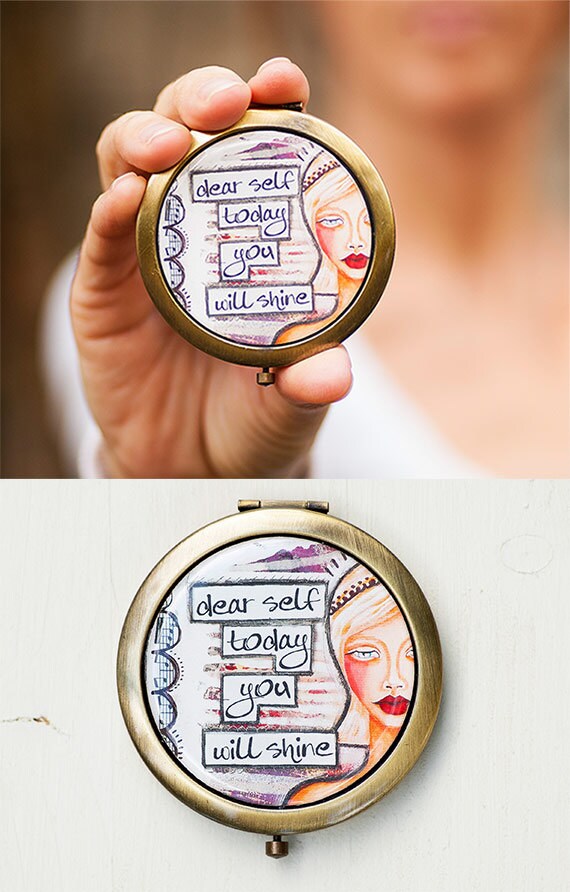 dear self
today
you
will shine
dear self
today
you
will shine